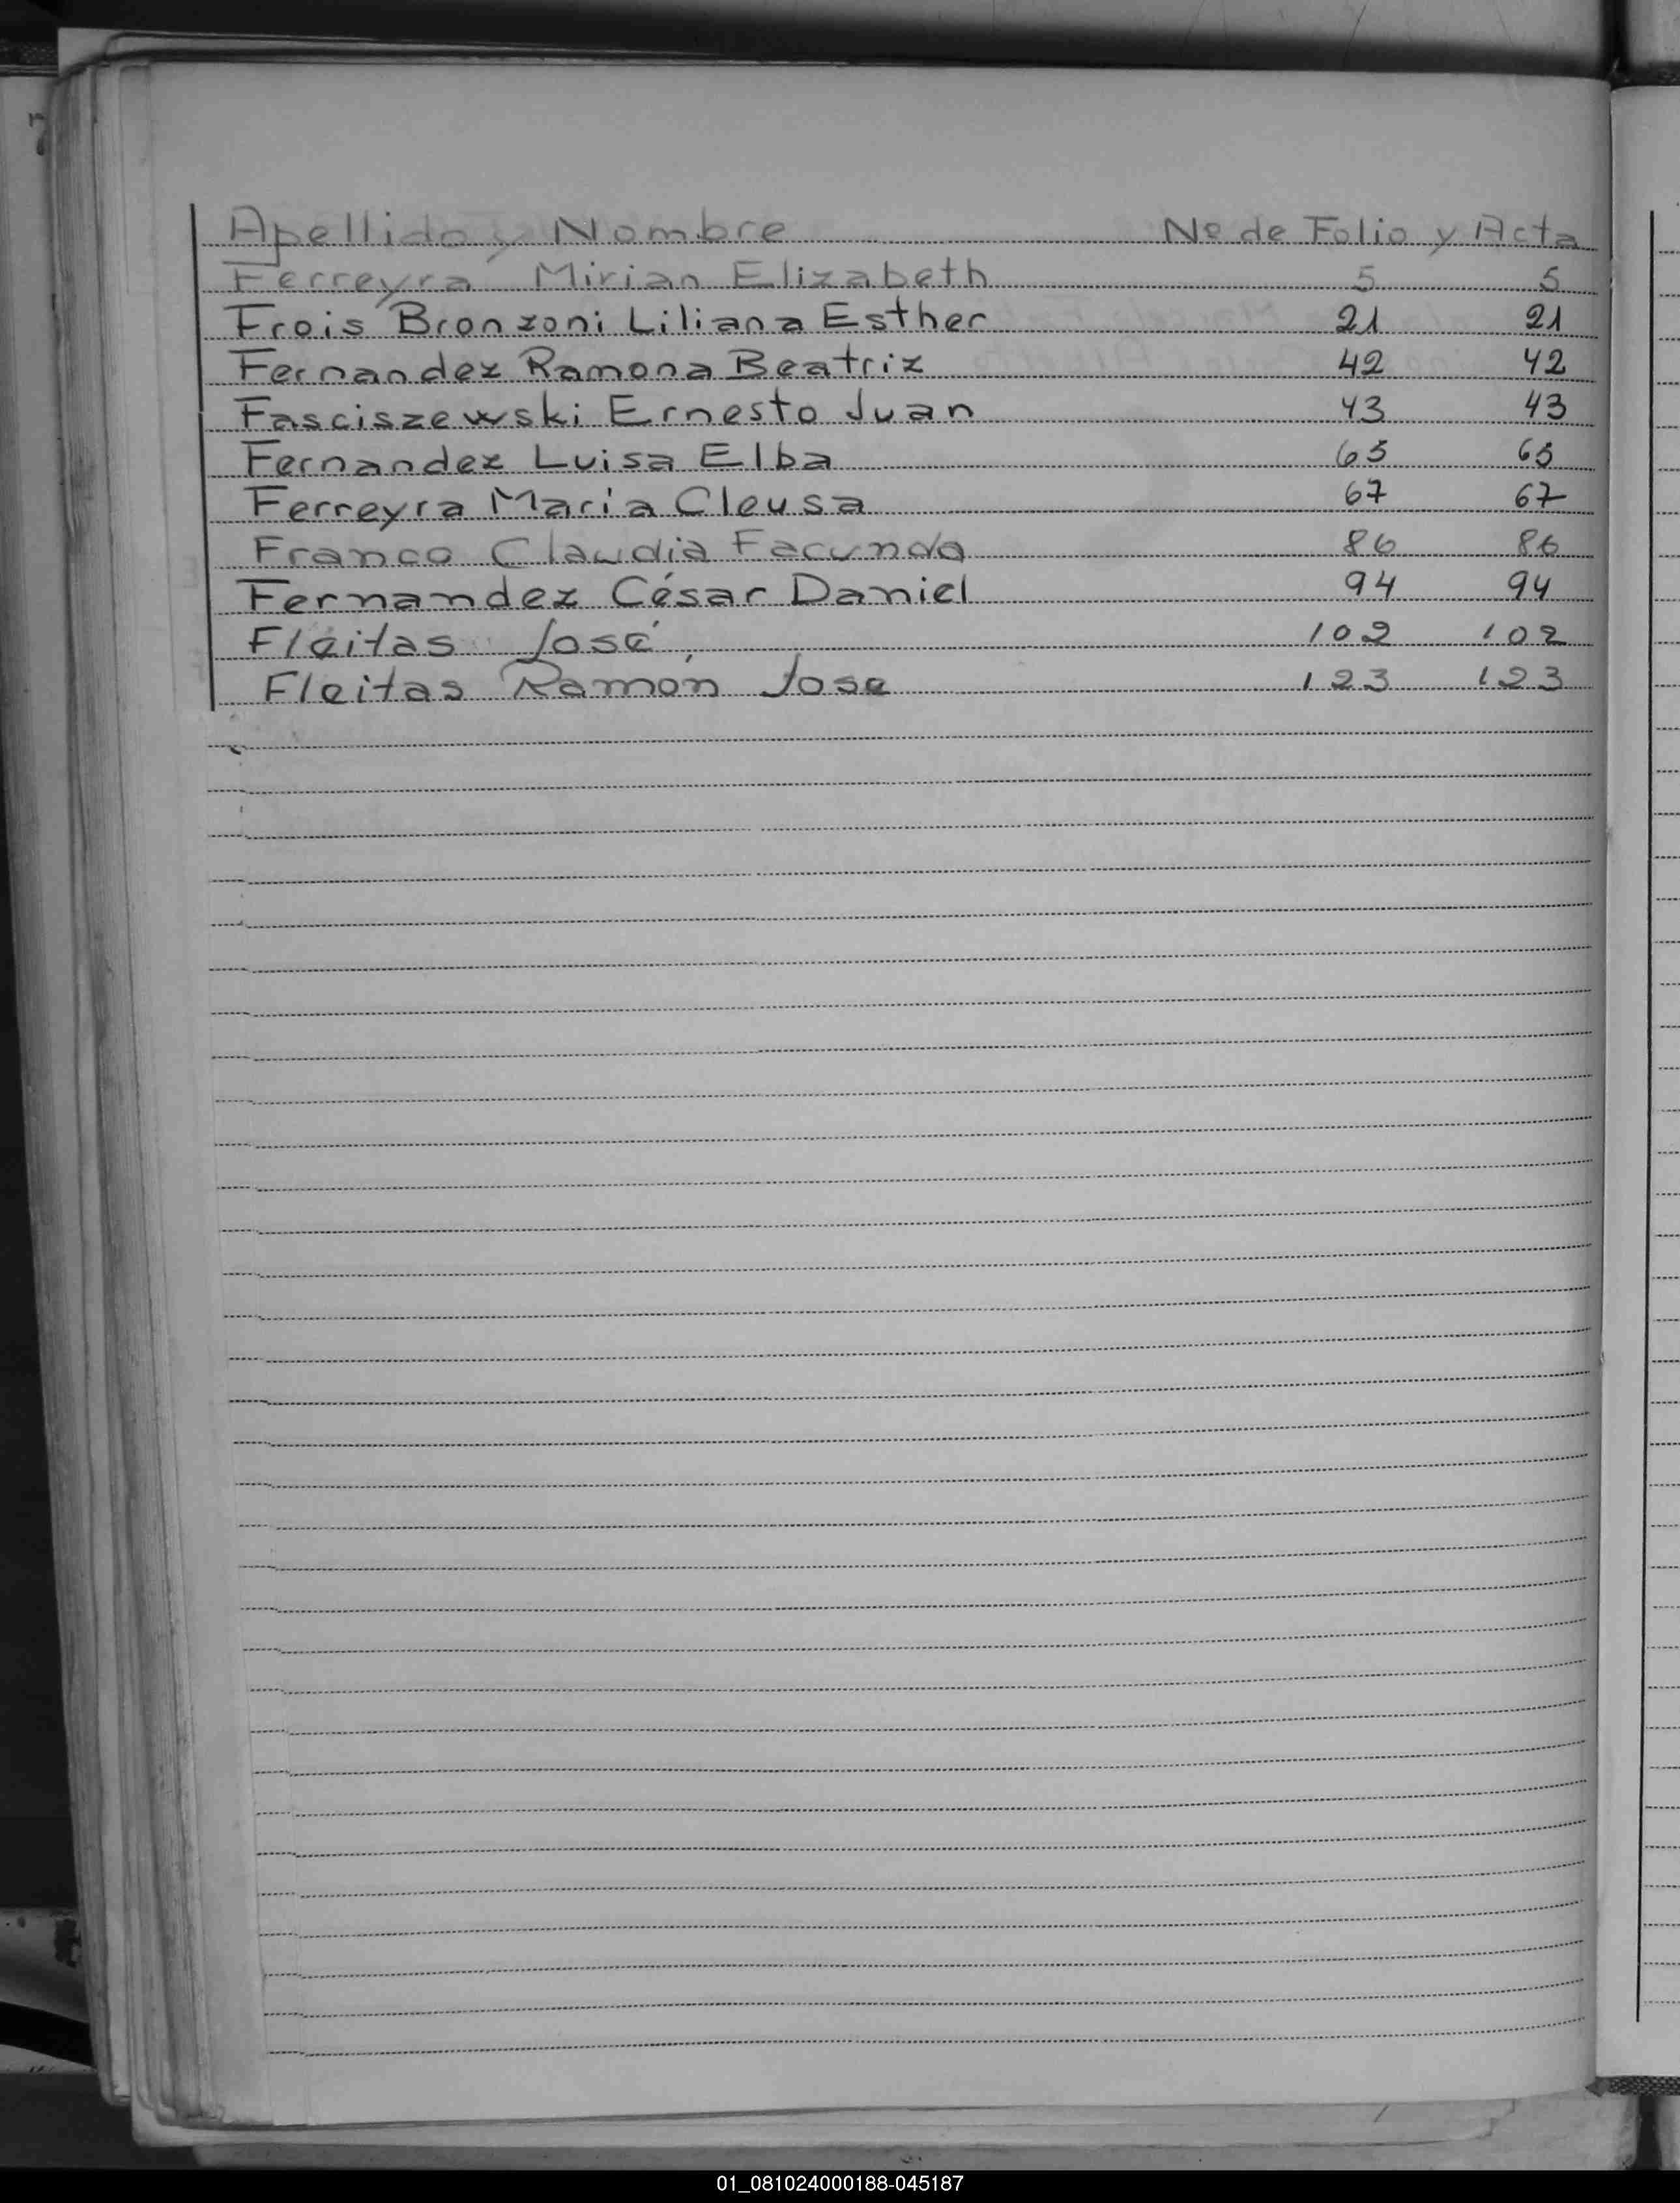 Apellido y Nombre Nº de Folio y Acta
Ferreyra Mirian Elizabeth 5 5
Frois Bronzoni Liliana Esther 21 21
Fernandez Ramona Beatriz 42 42
Fasciszewski Ernesto Juan 43 43
Fernandez Luisa Elba 65 65
Ferreyra Maria Cleusa 67 67
Franco Claudia Facundo 86 86
Fernandez César Daniel 94 94
Fleitas José 102 102
Fleitas Ramón Jose 123 123
01_081024000188-045187